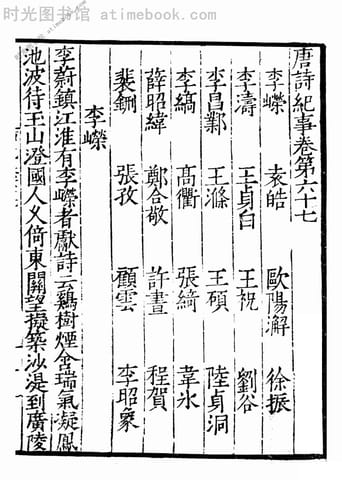 时光图书馆 - atimebook.com
唐詩紀事卷第六十七
李嶸 袁皓 歐陽澥 徐振
李濤 王貞白 王祝 劉谷
李昌鄴 王滌 王碩 陸貞洞
李縞 高衢 張綺 韋氷
薛昭緯 鄭合敬 許晝 程賀
裴鉶 張孜 顧雲 李昭象
李嶸
李蔚鎮江淮有李嶸者獻詩云鷄樹煙含瑞氣凝鳳
池波待玉山澄國人久倚東關望擬築沙湜到廣陵